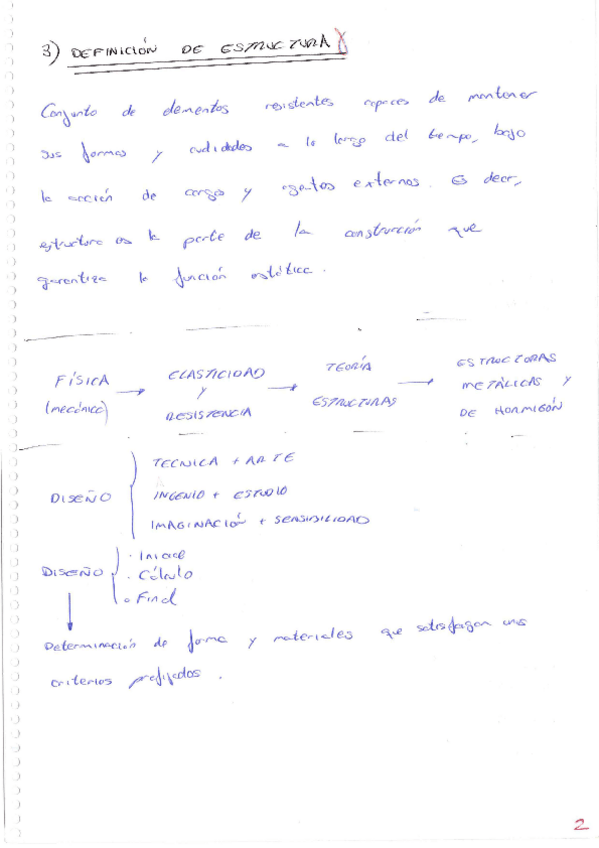 3) DEFINICIÓN DE ESTRUCTURA
Conjunto de elementos resistentes capaces de mantener
sus formas y cualidades a lo largo del tiempo, bajo
la acción de cargas y agentes externos. Es decir,
estructura es la parte de la construcción que
garantiza la función estática.
FÍSICA
(mecánica)
ELASTICIDAD
Y
RESISTENCIA
TEORÍA
ESTRUCTURAS
ESTRUCTURAS
METÁLICAS Y
DE HORMIGÓN
DISEÑO
TECNICA + ARTE
INGENIO + ESTUDIO
IMAGINACIÓN + SENSIBILIDAD
DISEÑO
· Inicial
· Cálculo
· Final
Determinación de forma y materiales que satisfagan unos
criterios prefijados.
2